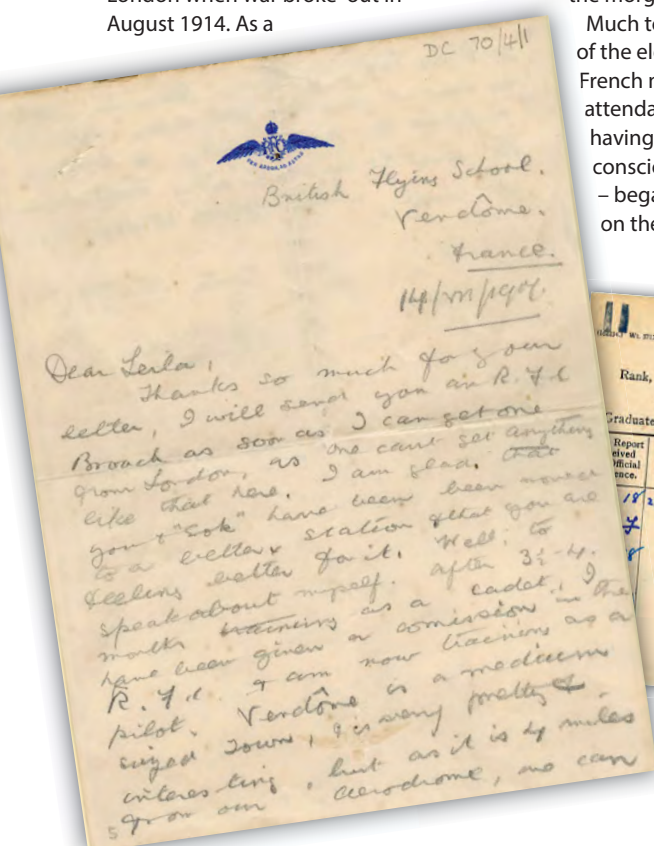 London when war broke out in
August 1914. As a
the morg
Much to
of the el
French
attenda
having
conscie
– bega
on the
DC 70/4/1
RFC
British Flying School.
Vendôme.
France.
Dear Leila,
Thanks so much for your
letter, I will send you an R.F.C
Broach as soon as I can get one
from London, as one cant get anything
like that here. I am glad that
you & "Sok" have been moved
to a better station & that you are
feeling better for it. Well, to
speak about myself. After 3½-4.
months training as a cadet, I
have been given a comission in the
R.F.C. & am now training as a
pilot. Vendôme is a medium
sized town, & is very pretty &
interesting, but as it is 4 miles
from our aerodrome, one can
5
11
Rank,
Graduate
Report
eived
fficial
ence.
18